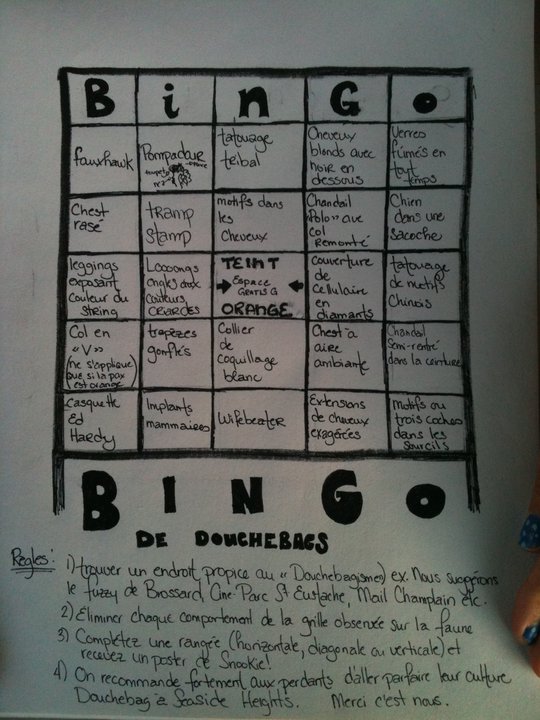 BiNGo
fauxhawk
Pompadour
tatouage
tribal
Cheveux
blonds avec
noir en
dessous
Verres
fumés en
tout
temps
Chest
rasé
tramp
stamp
motifs dans
les
Cheveux
Chandail
"Polo" avec
col
Remonté
Chien
dans une
sacoche
leggings
exposant
couleur du
string
Looongs
ongles aux
couleurs
criardes
TEINT
Espace
Gratis
ORANGE
couverture
de
cellulaire
en
diamants
tatouage
de motifs
Chinois
Col en
"V"
(ne s'applique
que si la peau
est orange)
trapèzes
gonflés
Collier
de
coquillage
blanc
Chest à
aire
ambiante
Chandail
semi-rentré
dans la ceinture
Casquette
Ed
Hardy
Implants
mammaires
Wifebeater
Extensions
de cheveux
exagérées
motifs ou
trois coches
dans les
sourcils
BINGO
DE DOUCHEBAGS
Règles: 1) trouver un endroit propice au "Douchebagisme" ex. Nous suggérons
le fuzzy de Brossard, Ciné-Parc St Eustache, Mail Champlain etc.
2) Éliminer chaque comportement de la grille observée sur la faune
3) Complétez une rangée (horizontale, diagonale ou verticale) et
recevez un poster de Snookie!
4) On recommande fortement aux perdants d'aller parfaire leur culture
Douchebag à Seaside Heights. Merci c'est nous.